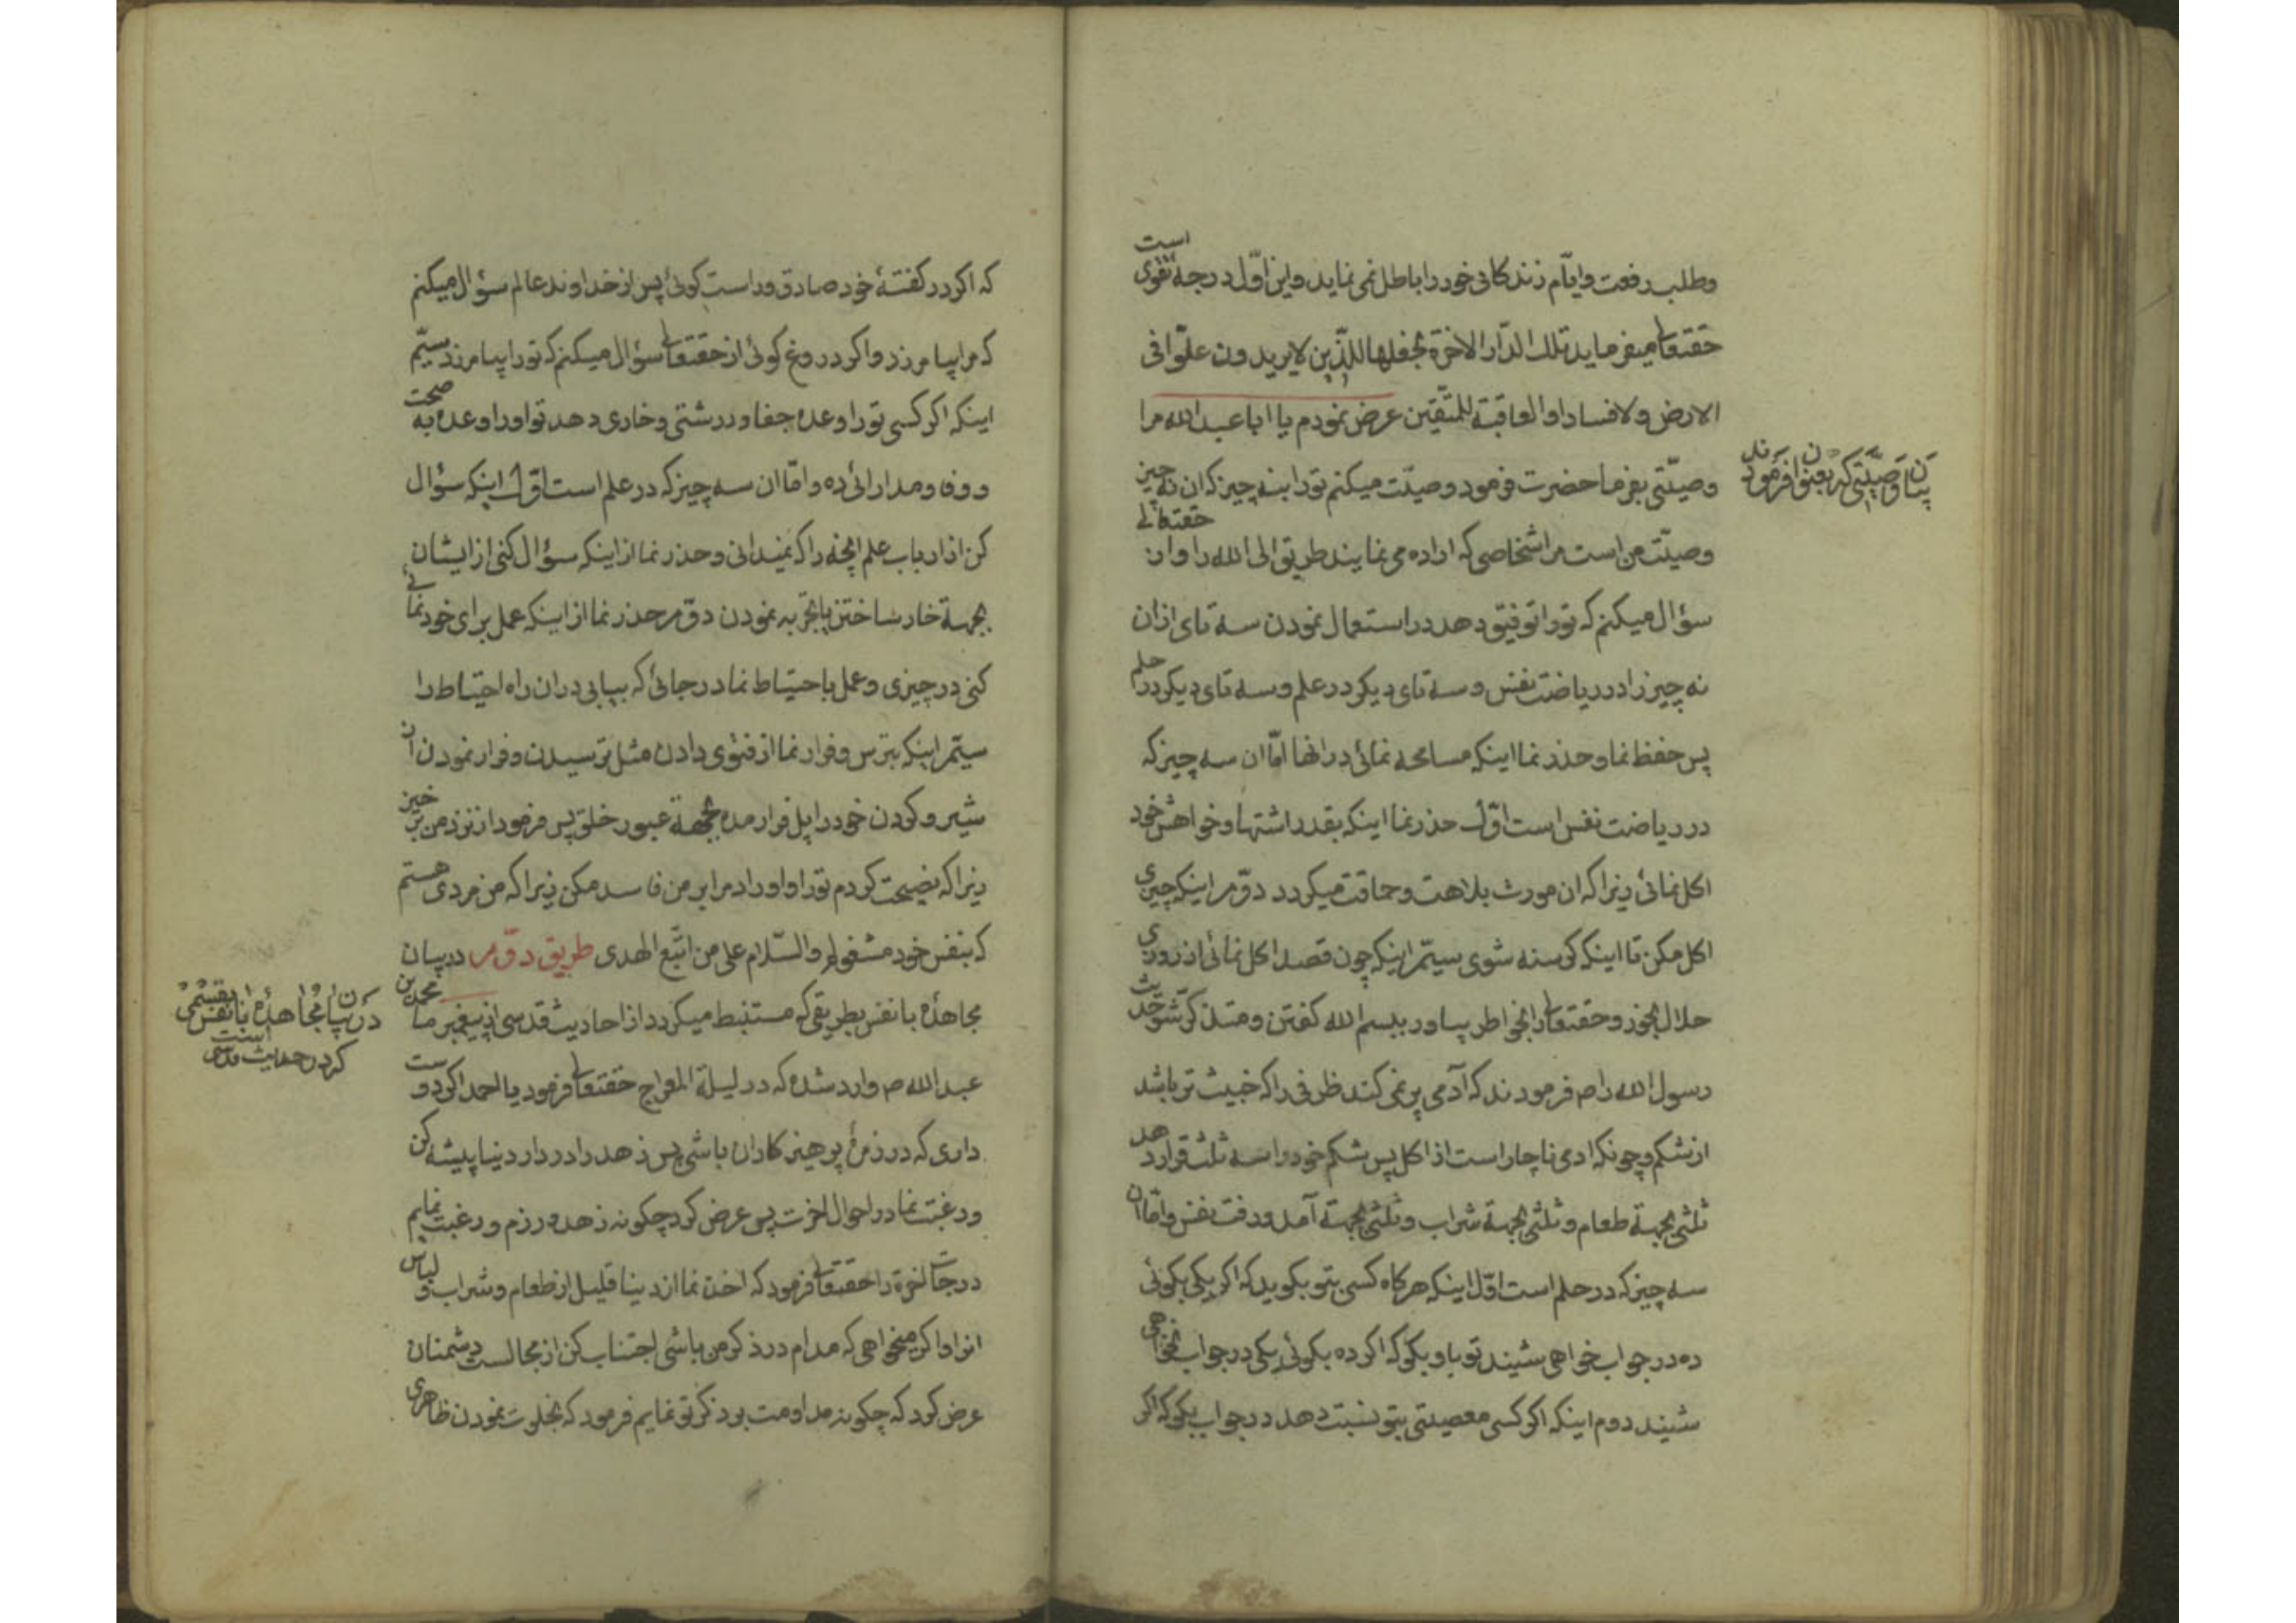 وطلب رفعت وایّام زندکانی خود را باطل نمی نماید و این اوّل درجهٔ تقوی است
حقتعالی میفرماید تلک الدّار الاخرة نجعلها للّذین لا یریدون علوّا فی
الارض ولا فسادا والعاقبة للمتّقین عرض نمودم یا ابا عبدالله مرا
وصیّتی بفرما حضرت فرمود وصیّت میکنم تو را بنه چیز که ان نه چیز
وصیّت من است مر اشخاصی که اراده می نمایند طریق الی الله را و از حقتعالی
سؤال میکنم که تو را توفیق دهد در استعمال نمودن سه تای از ان
نه چیز را در ریاضت نفس و سه تای دیکر در علم و سه تای دیکر در حلم
پس حفظ نما و حذر نما اینکه مسامحه نمائی در انها امّا ان سه چیز که
در ریاضت نفس است اوّل حذر نما اینکه بقدر اشتها و خواهش خود
اکل نمائی زیرا که ان مورث بلاهت و حماقت میکردد دوّم اینکه چیزی
اکل مکن تا اینکه کرسنه شوی سیّم اینکه چون قصد اکل نمائی از روزی
حلال بخور و حقتعالی را بخواطر بیاور ببسم الله کفتن و متذکر شو حدیث
رسول الله را ص فرمودند که آدمی پر نمی کند ظرفی را که خبیث تر باشد
از شکم و چونکه ادمی ناچار است از اکل پس شکم خود را سه ثلث قرار دهد
ثلثی بجهة طعام و ثلثی بجهة شراب و ثلثی بجهة آمد و رفت نفس و امّا ان
سه چیز که در حلم است اوّل اینکه هرکاه کسی بتو بکوید که اکر یکی بکوئی
ده در جواب خواهی شنید تو باو بکو که اکر ده بکوئی یکی در جواب نخواهی
شنید دوم اینکه اکر کسی معصیتی بتو نسبت دهد در جواب بکو که اکر
بیان وصیّتی که بعنوان فرمودند
که اکر در کفتهٔ خود صادق و راست کوئی پس از خداوند عالم سؤال میکنم
که مرا بیامرزد و اکر دروغ کوئی از حقتعالی سؤال میکنم که تو را بیامرزد سیّم
اینکه اکر کسی تو را وعده جفا و درشتی و خاری دهد تو او را وعده به صحت
و وفا و مدارائی ده و امّا ان سه چیز که در علم است اوّل اینکه سؤال
کن از ارباب علم انچه را که نمیدانی و حذر نما از اینکه سؤال کنی از ایشان
بجهة خار ساختن یا تجربه نمودن دوّم حذر نما از اینکه عمل برای خودنمائی
کنی در چیزی و عمل باحتیاط نما در جائی که بیابی در ان راه احتیاط را
سیّم اینکه بترس و فرار نما از فتوی دادن مثل ترسیدن و فرار نمودن از
شیر و کردن خود را پل قرار مده بجهة عبور خلق پس فرمود از نزد من بر خیز
زیرا که نصیحت کردم تو را و اوراد مرا بر من فاسد مکن زیرا که من مردی هستم
که بنفس خود مشغولم والسّلام علی من اتّبع الهدی طریق دوّم در بیان
مجاهدهٔ با نفس بطریقی که مستنبط میکردد از احادیث قدسی از پیغمبر ما محمد بن
عبدالله ص وارد شده که در لیلة المعراج حقتعالی فرمود یا احمد اکر دوست
داری که در زمرهٔ پرهیزکاران باشی پس زهد را در دار دنیا پیشه کن
و رغبت نما در احوال اخرت پس عرض کرد چکونه زهد ورزم و رغبت نمایم
درجات اخرة را حقتعالی فرمود که اخذ نما از دنیا قلیل از طعام و شراب و لباس
انرا و اکر میخواهی که مدام در ذکر من باشی اجتناب کن از مجالست دشمنان
عرض کرد که چکونه مداومت بر ذکر تو نمایم فرمود که بخلوت نمودن ظاهری
در بیان مجاهدهٔ با نفس
کردن حدیث قدسی است